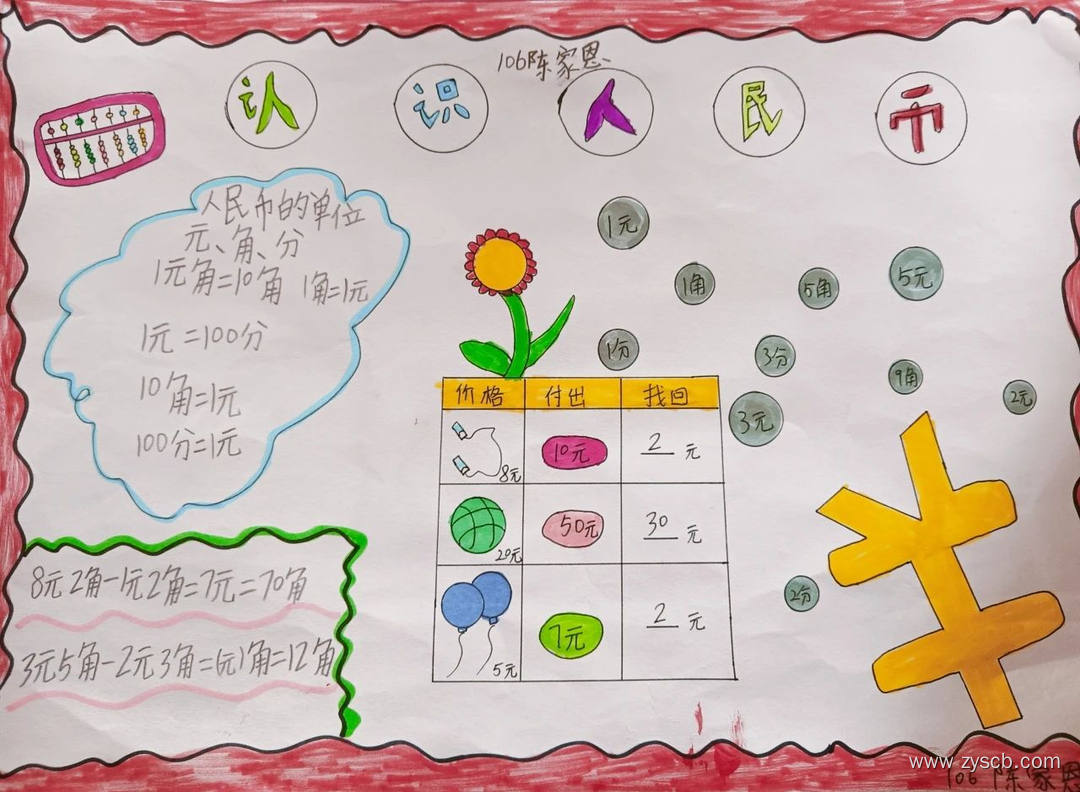 106陈家恩
认识人民币
人民币的单位
元、角、分
1元角=10角 1角=1元
1元=100分
10角=1元
100分=1元
8元2角-1元2角=7元=70角
3元5角-2元3角=1元1角=12角
1元
1角
5角
5元
1分
3分
9角
2元
3元
2分
价格 付出 找回
8元 10元 2元
20元 50元 30元
5元 7元 2元
www.zyscb.com
106陈家恩